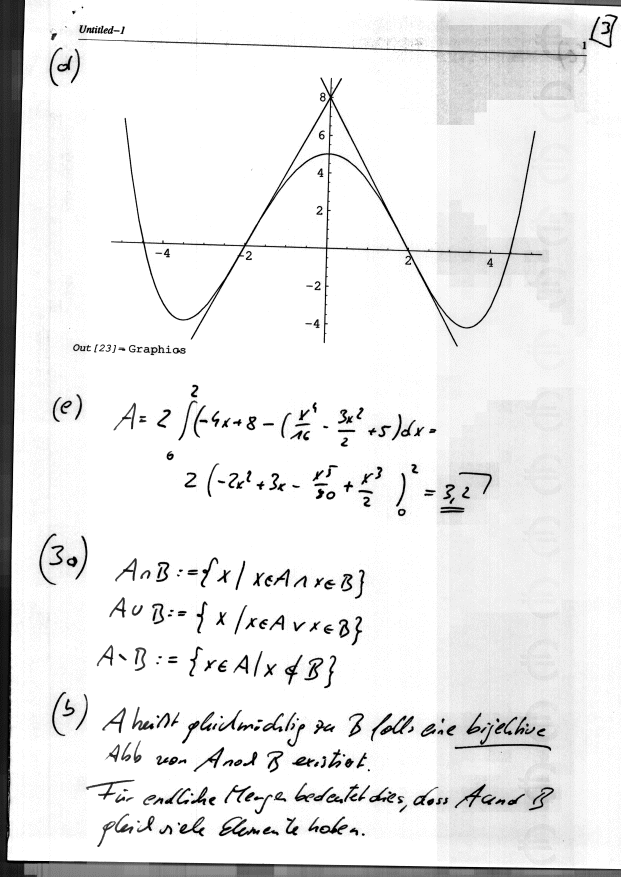 Untitled-1
1
[3]
(d)
8
6
4
2
-4
-2
2
4
-2
-4
Out[23]= Graphics
(e) A = 2 ∫₀² (-4x+8 - (x⁴/16 - 3x²/2 + 5) dx =
2 (-2x² + 3x - x⁵/80 + x³/2 )₀² = 3,2
(3a) A∩B := { x / x∈A ∧ x∈B}
A∪B := { x / x∈A ∨ x∈B}
A∖B := {x∈A | x ∉ B}
(b) A heißt gleichmächtig zu B falls eine bijektive
Abb von A nach B existiert.
Für endliche Mengen bedeutet dies, dass A und B
gleich viele Elemente haben.